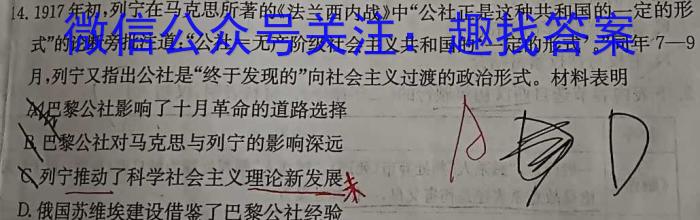 14.1917年初,列宁在马克思所著的《法兰西内战》中“公社正是这种共和国的一定的形
微信公众号关注:趣找答案
式”的论断旁批注道:“公社—无产阶级社会主义共和国的一定的形式”。同年7—9
月,列宁又指出公社是“终于发现的”向社会主义过渡的政治形式。材料表明
A.巴黎公社影响了十月革命的道路选择
B.巴黎公社对马克思与列宁的影响深远
C.列宁推动了科学社会主义理论新发展 未
D.俄国苏维埃建设借鉴了巴黎公社经验
D